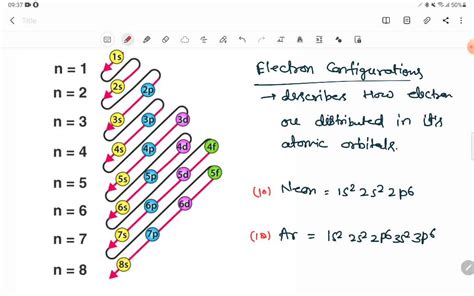 09:37
50%
Title
n = 1
1s
n = 2
2s 2p
n = 3
3s 3p 3d
n = 4
4s 4p 4d 4f
n = 5
5s 5p 5d 5f
n = 6
6s 6p 6d
n = 7
7s 7p
n = 8
8s
Electron Configurations
→ describes How electron
are distributed in its
atomic orbitals.
(10) Neon = 1s² 2s² 2p6
(18) Ar = 1s² 2s² 2p6 3s² 3p6